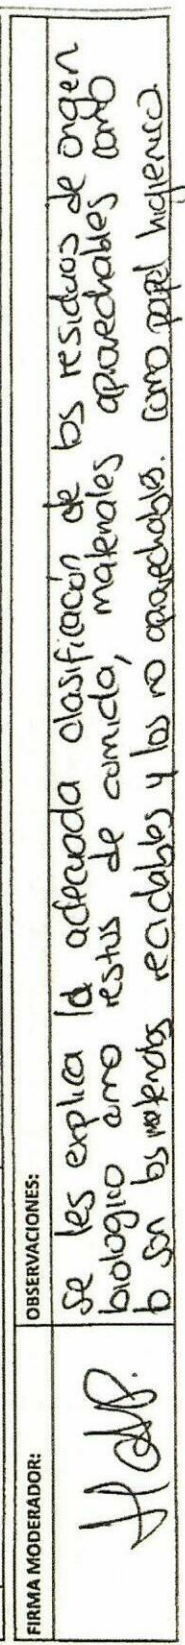 FIRMA MODERADOR:
OBSERVACIONES:
Se les explica la adecuada clasificación de los residuos de origen
biologico como restos de comida, materiales aprovechables como
lo son los materiales reciclables y los no aprovechables. como papel higienico.